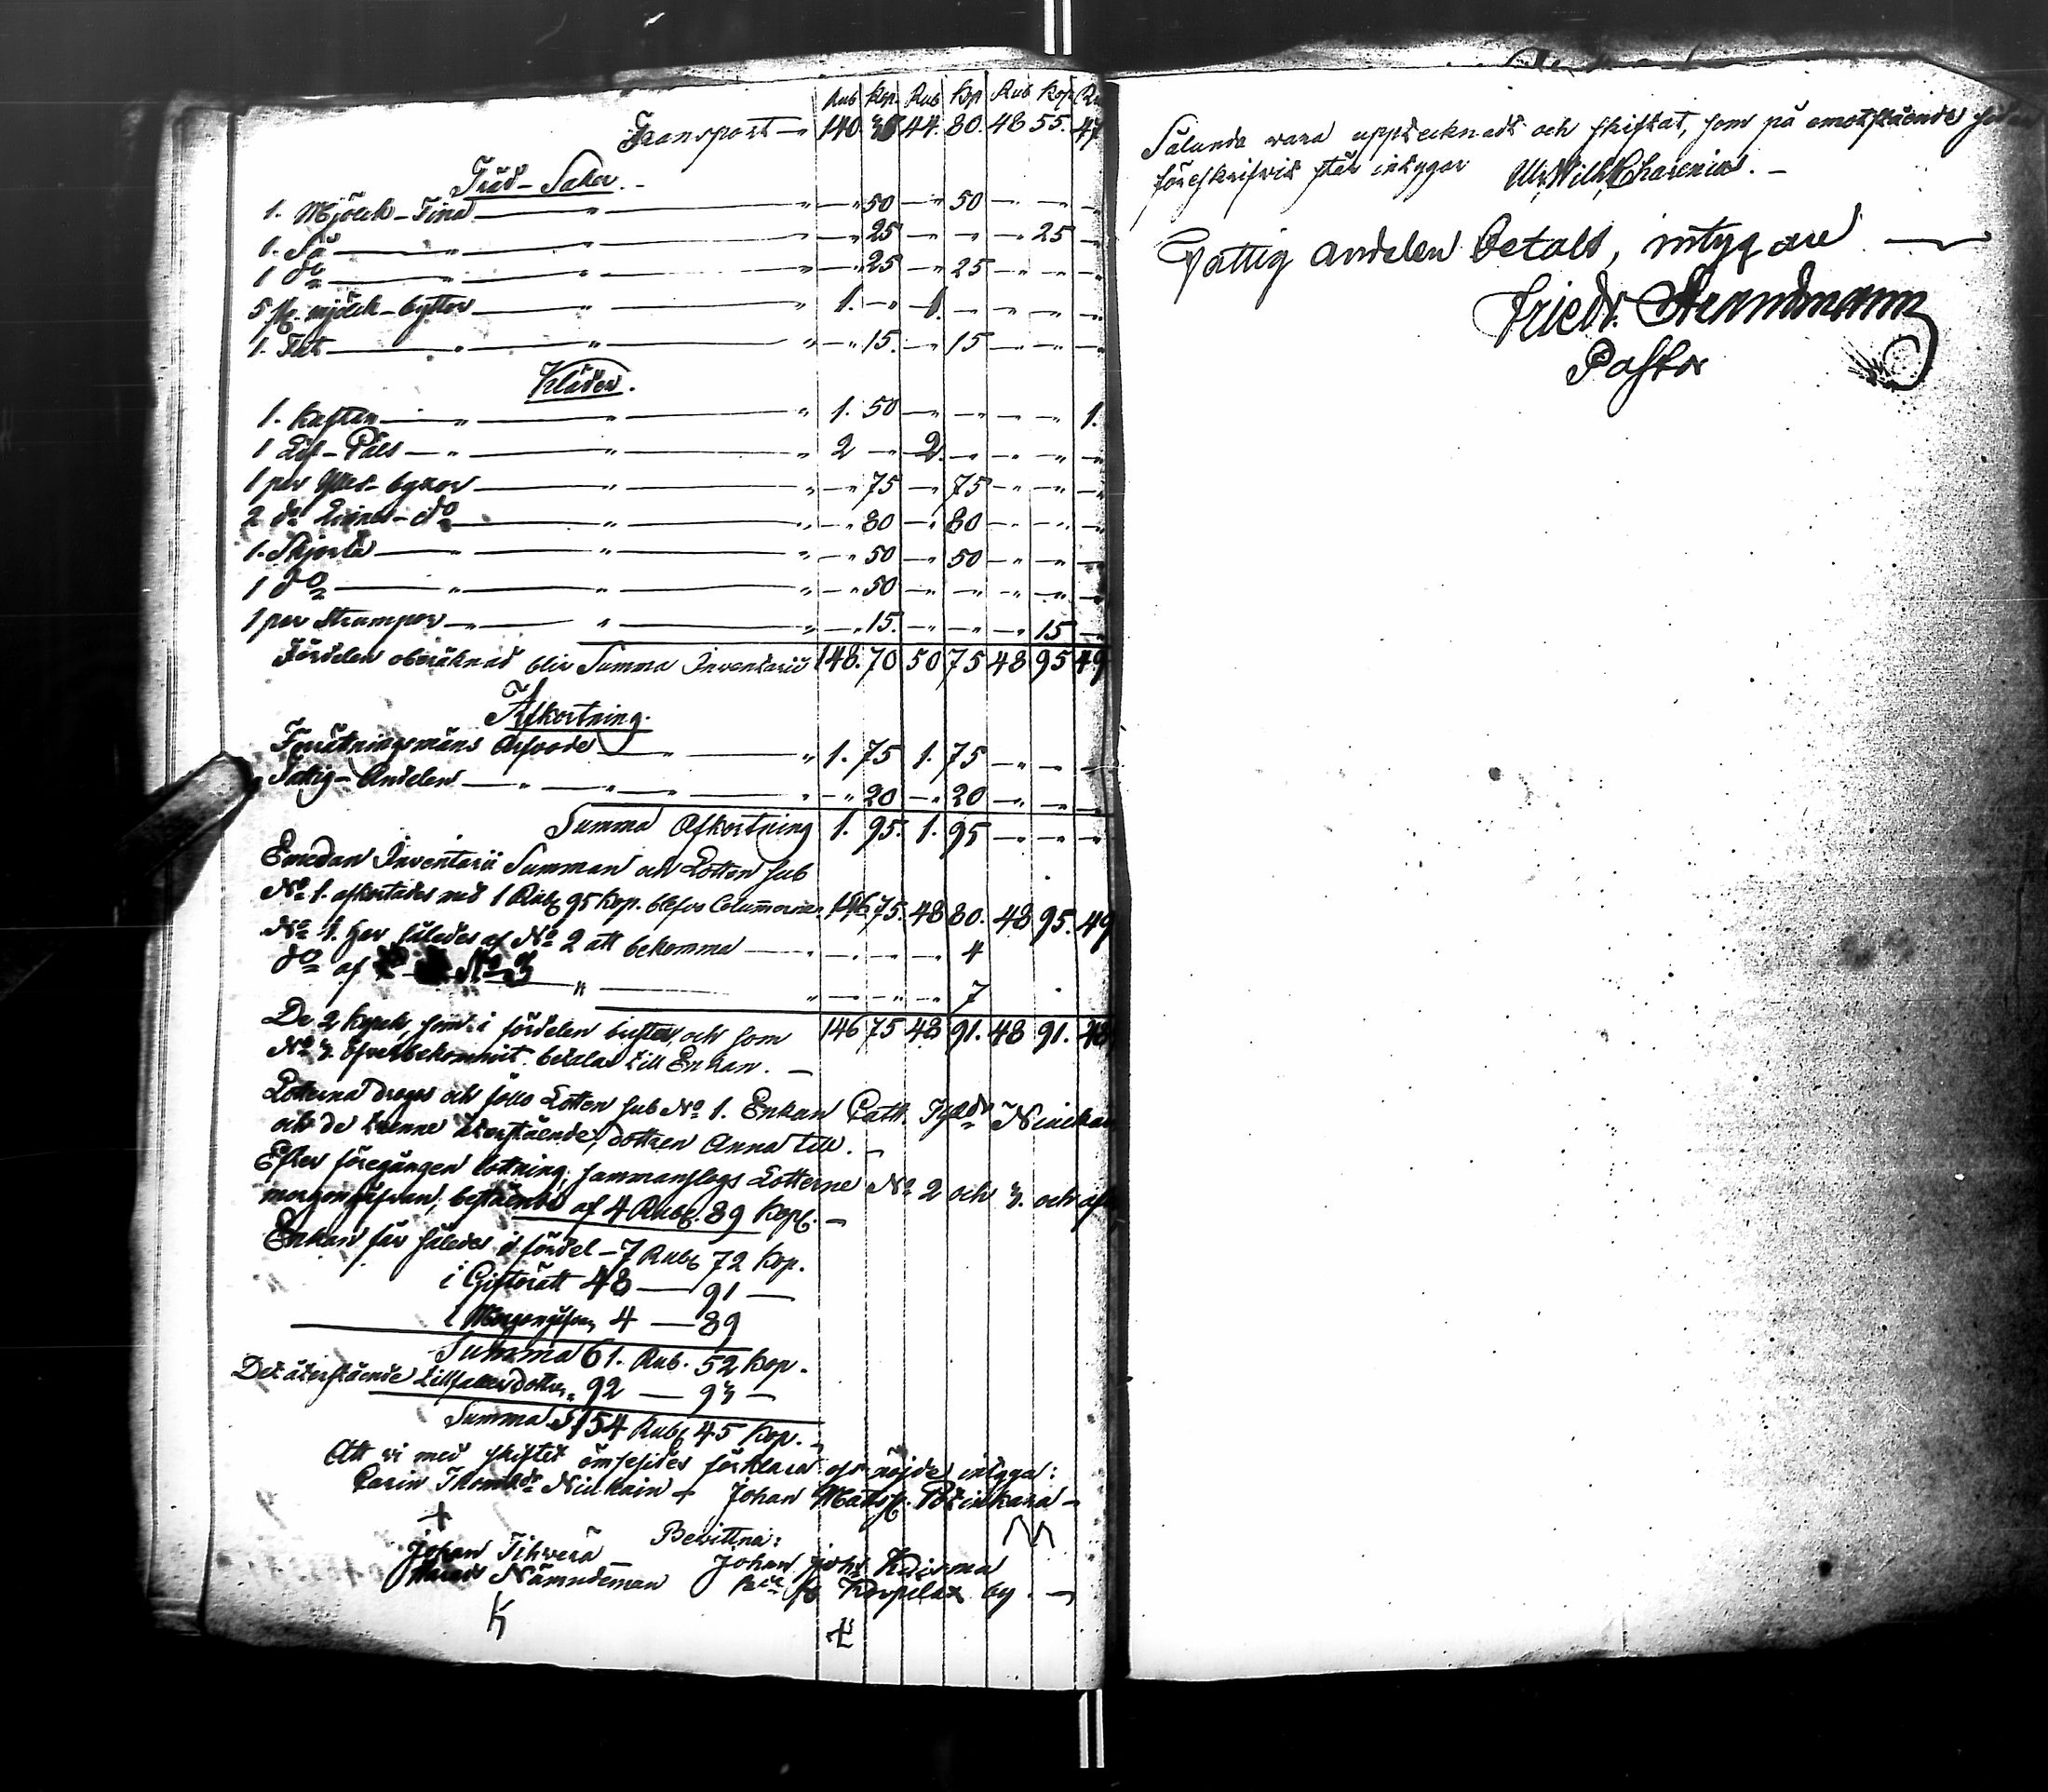 Rub Kop. Rub Kop Rub Kop Ru
Transport — 140. 35 44. 80. 48 55. 47
Träd-Saker.
1. Mjölck-Tina — " — " 50 — " 50 — " — " —
1. Så — " — " 25 — " — " — 25 —
1 do — " — " 25 — " 25 — " — " —
5 st. mjölck-byttor — " 1. — " 1. — " — " — " —
1. Fat — " — " 15. — " 15 — " — " —
Kläder.
1. Kaftan — " 1. 50 — " — " — " — " 1.
1 Lif-Päls — " 2 — " 2. — " — " — " —
1 par Ylles-byxor — " — " 75 — " 75 — " — " —
2 do Linnes-do — " — " 80 — " 80 — " — " —
1. Skjorta — " — " 50 — " 50 — " — " —
1 do — " — " 50 — " — " — " — " —
1 par Strumpor — " — " 15. — " — " — " 15 —
Fördelen oberäknad blir Summa Inventarii 148. 70 50 75 48 95 49
Afkortning.
Förrättningsmäns Arfvode — " 1. 75 1. 75 — " — " —
Fattig-Andelen — " — " 20 — " 20 — " — " —
Summa Afkortning 1. 95. 1. 95 — " — " —
Emedan Inventarii Summan och Lotten sub
No 1. afkortades med 1 Rub 95 Kop. blefvo Columnerne 146 75. 48 80. 48 95. 49
No 1. har således af No 2 att bekomma — " — " — " — " 4
do af No 3 — " — " — " — " 7
146 75 48 91. 48 91. 48
De 2 kopek, som i fördelen brister, och som
No 3. öfverbekommit betalas till Enkan. —
Lotterna drogos och föll Lotten sub No 1. Enkan Cath. Thomæ dr Niuckan
och de trenne återstående, dottren Anna till. —
Efter föregången lottning, sammanslogs Lotterne No 2 och 3. och af
morgongåfvan, bestående af 4 Rub. 89 Kop. —
Enkan får således i fördel — 7 Rub 72 Kop.
i Giftorätt 48 — 91 —
i Morgongåfva, 4 — 89
Summa 61. Rub. 52 Kop.
Det återstående tillfaller dottren 92 — 93 —
Summa 154 Rub 45 Kop. —
Att vi med skiftet ömsesides förklara oss nöjde intyga:
Carin Thomædr Niukain — Johan Matts. Pötinkara —
Bevittna:
Johan Tihverä Johan Johs Kaisma
Nämndeman fr Korpelax by. —
Sålunda vara upptecknadt och skiftat, som på emotstående sidan
föreskrifvit står intygar Ulr. Wilh. Charenius. —
Fattig andelen betalt, intygar —
Friedr. Strandmann
Pastor